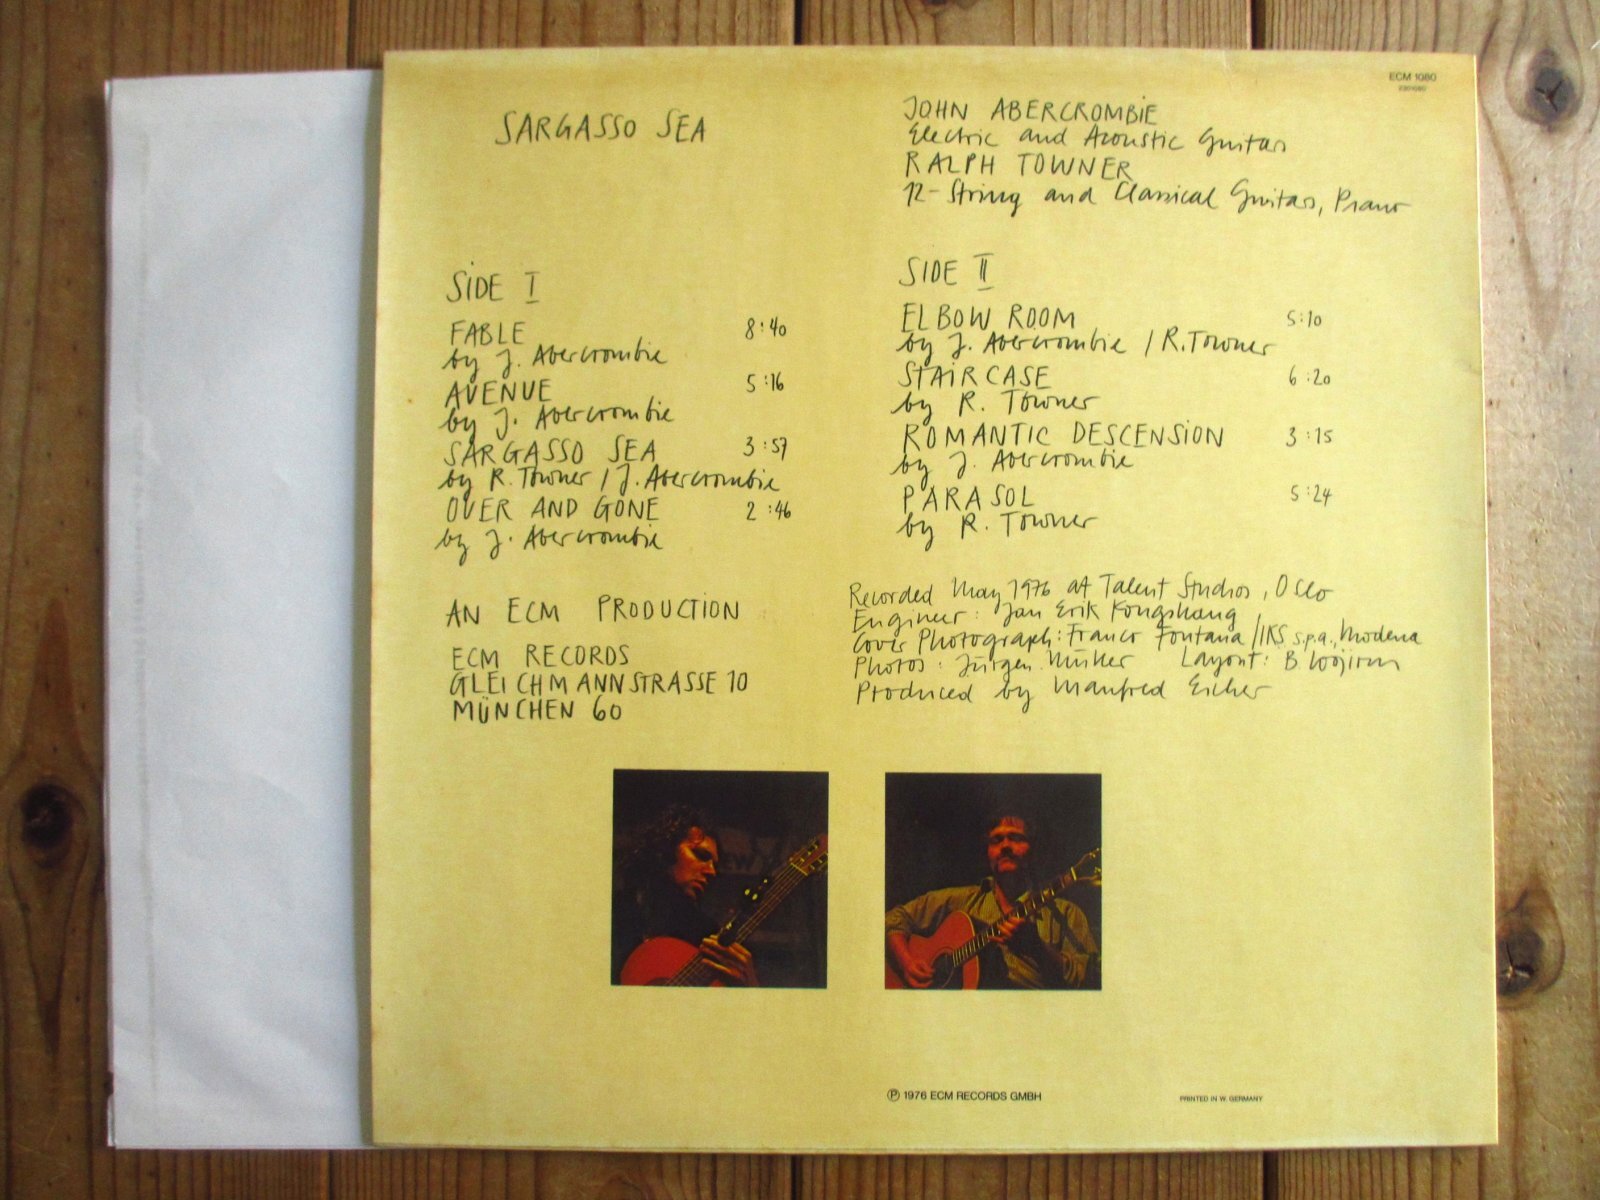 ECM 1080
2301080
SARGASSO SEA
JOHN ABERCROMBIE
Electric and Acoustic Guitars
RALPH TOWNER
12-String and Classical Guitars, Piano
SIDE I
FABLE 8:40
by J. Abercrombie
AVENUE 5:16
by J. Abercrombie
SARGASSO SEA 3:57
by R. Towner / J. Abercrombie
OVER AND GONE 2:46
by J. Abercrombie
SIDE II
ELBOW ROOM 5:10
by J. Abercrombie / R. Towner
STAIRCASE 6:20
by R. Towner
ROMANTIC DESCENSION 3:15
by J. Abercrombie
PARASOL 5:24
by R. Towner
AN ECM PRODUCTION
ECM RECORDS
GLEICHMANNSTRASSE 10
MÜNCHEN 60
Recorded May 1976 at Talent Studios, Oslo
Engineer: Jan Erik Kongshaug
Cover Photograph: Franco Fontana / IKS s.p.a., Modena
Photos: Jürgen Müller Layout: B Wojirsch
Produced by Manfred Eicher
℗ 1976 ECM RECORDS GMBH
PRINTED IN W. GERMANY